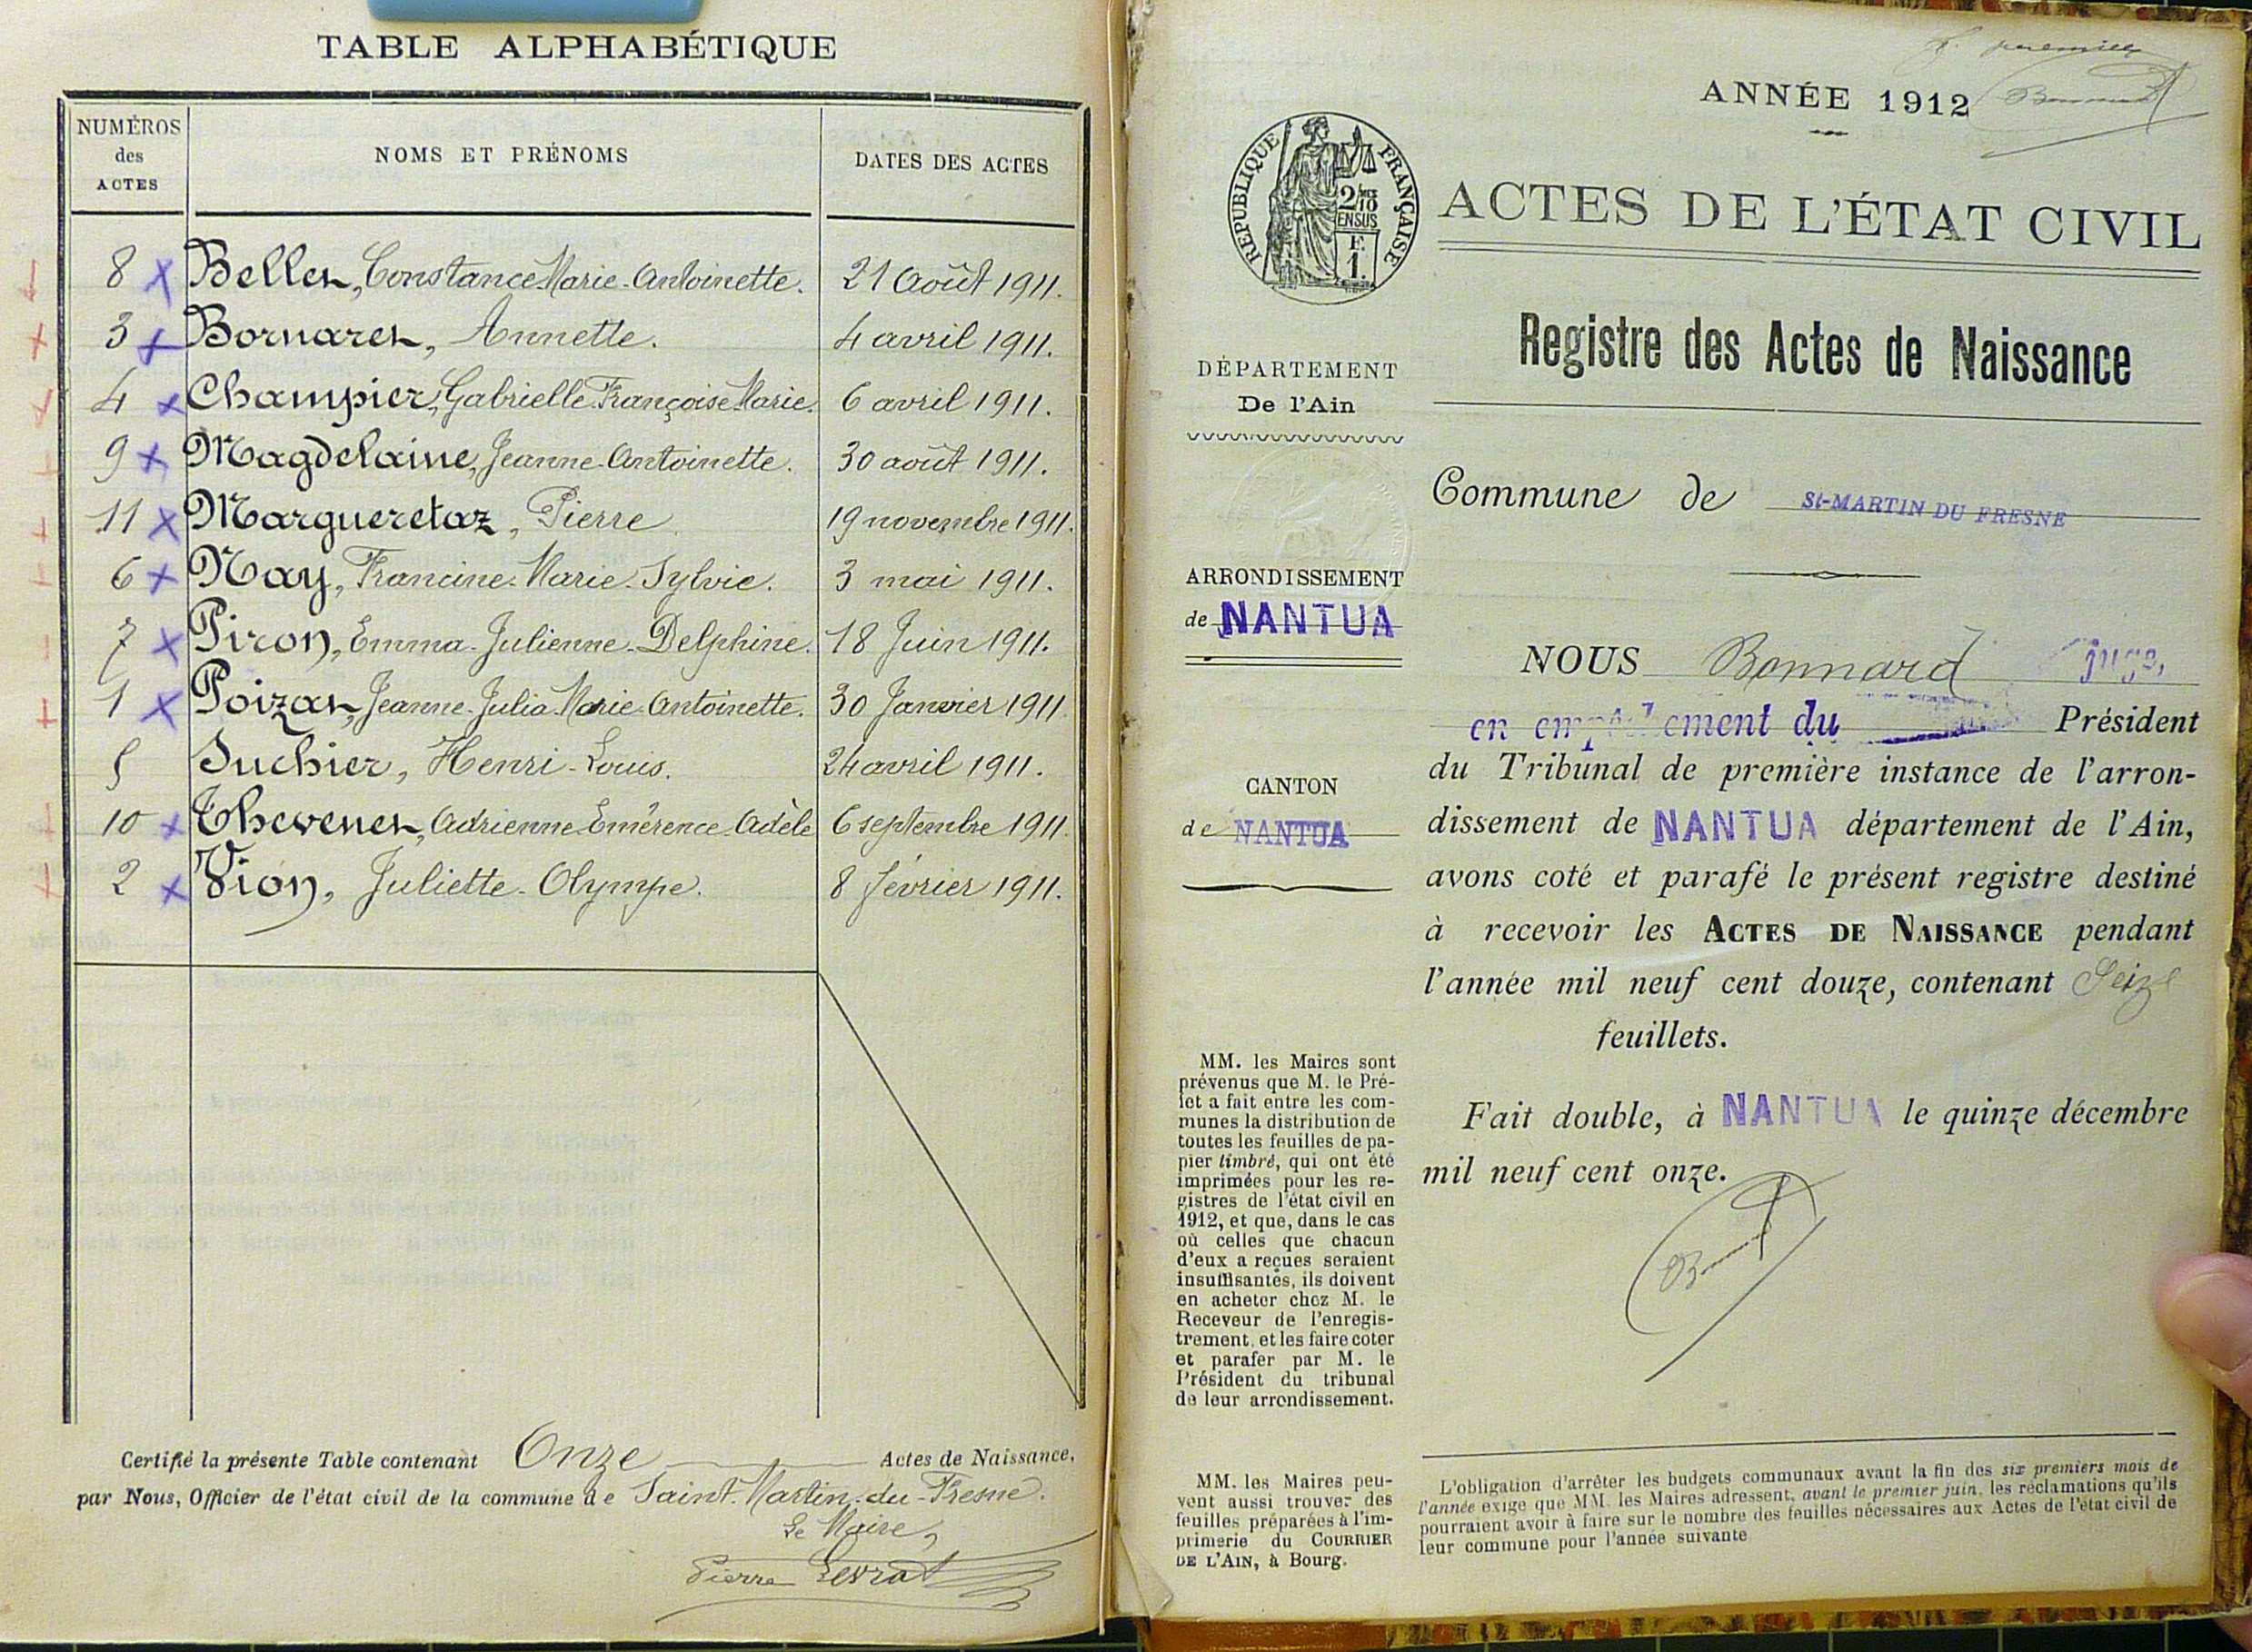 TABLE ALPHABÉTIQUE
NUMÉROS des ACTES
NOMS ET PRÉNOMS
DATES DES ACTES
8 Belley, Constance Marie-Antoinette. 21 Août 1911.
3 Bornarel, Annette. 4 avril 1911.
4 Champier, Gabrielle Françoise Marie. 6 avril 1911.
9 Magdelaine, Jeanne-Antoinette. 30 août 1911.
11 Margueretaz, Pierre 19 novembre 1911.
6 Nay, Francine-Marie-Sylvie. 3 mai 1911.
7 Piron, Emma-Julienne-Delphine. 18 Juin 1911.
1 Poizat, Jeanne-Julia-Marie-Antoinette. 30 Janvier 1911
5 Suchier, Henri-Louis. 24 avril 1911.
10 Thevenet, Adrienne-Emérence-Adèle 6 septembre 1911.
2 Vion, Juliette-Olympe. 8 février 1911.
Certifié la présente Table contenant Onze Actes de Naissance,
par Nous, Officier de l'état civil de la commune de Saint-Martin-du-Fresne.
Le Maire,
Pierre Levrat
ANNÉE 1912
RÉPUBLIQUE FRANÇAISE
2/10 EN SUS
F. 1.
ACTES DE L'ÉTAT CIVIL
Registre des Actes de Naissance
DÉPARTEMENT
De l'Ain
Commune de St-MARTIN DU FRESNE
ARRONDISSEMENT
de NANTUA
CANTON
de NANTUA
NOUS Bonnard juge,
en empêchement du Président
du Tribunal de première instance de l'arron-
dissement de NANTUA département de l'Ain,
avons coté et parafé le présent registre destiné
à recevoir les ACTES DE NAISSANCE pendant
l'année mil neuf cent douze, contenant Seize
feuillets.
Fait double, à NANTUA le quinze décembre
mil neuf cent onze.
MM. les Maires sont
prévenus que M. le Pré-
fet a fait entre les com-
munes la distribution de
toutes les feuilles de pa-
pier timbré, qui ont été
imprimées pour les re-
gistres de l'état civil en
1912, et que, dans le cas
où celles que chacun
d'eux a reçues seraient
insuffisantes, ils doivent
en acheter chez M. le
Receveur de l'enregis-
trement, et les faire coter
et parafer par M. le
Président du tribunal
de leur arrondissement.
MM. les Maires peu-
vent aussi trouver des
feuilles préparées à l'im-
primerie du COURRIER
DE L'AIN, à Bourg.
L'obligation d'arrêter les budgets communaux avant la fin des six premiers mois de
l'année exige que MM. les Maires adressent, avant le premier juin, les réclamations qu'ils
pourraient avoir à faire sur le nombre des feuilles nécessaires aux Actes de l'état civil de
leur commune pour l'année suivante